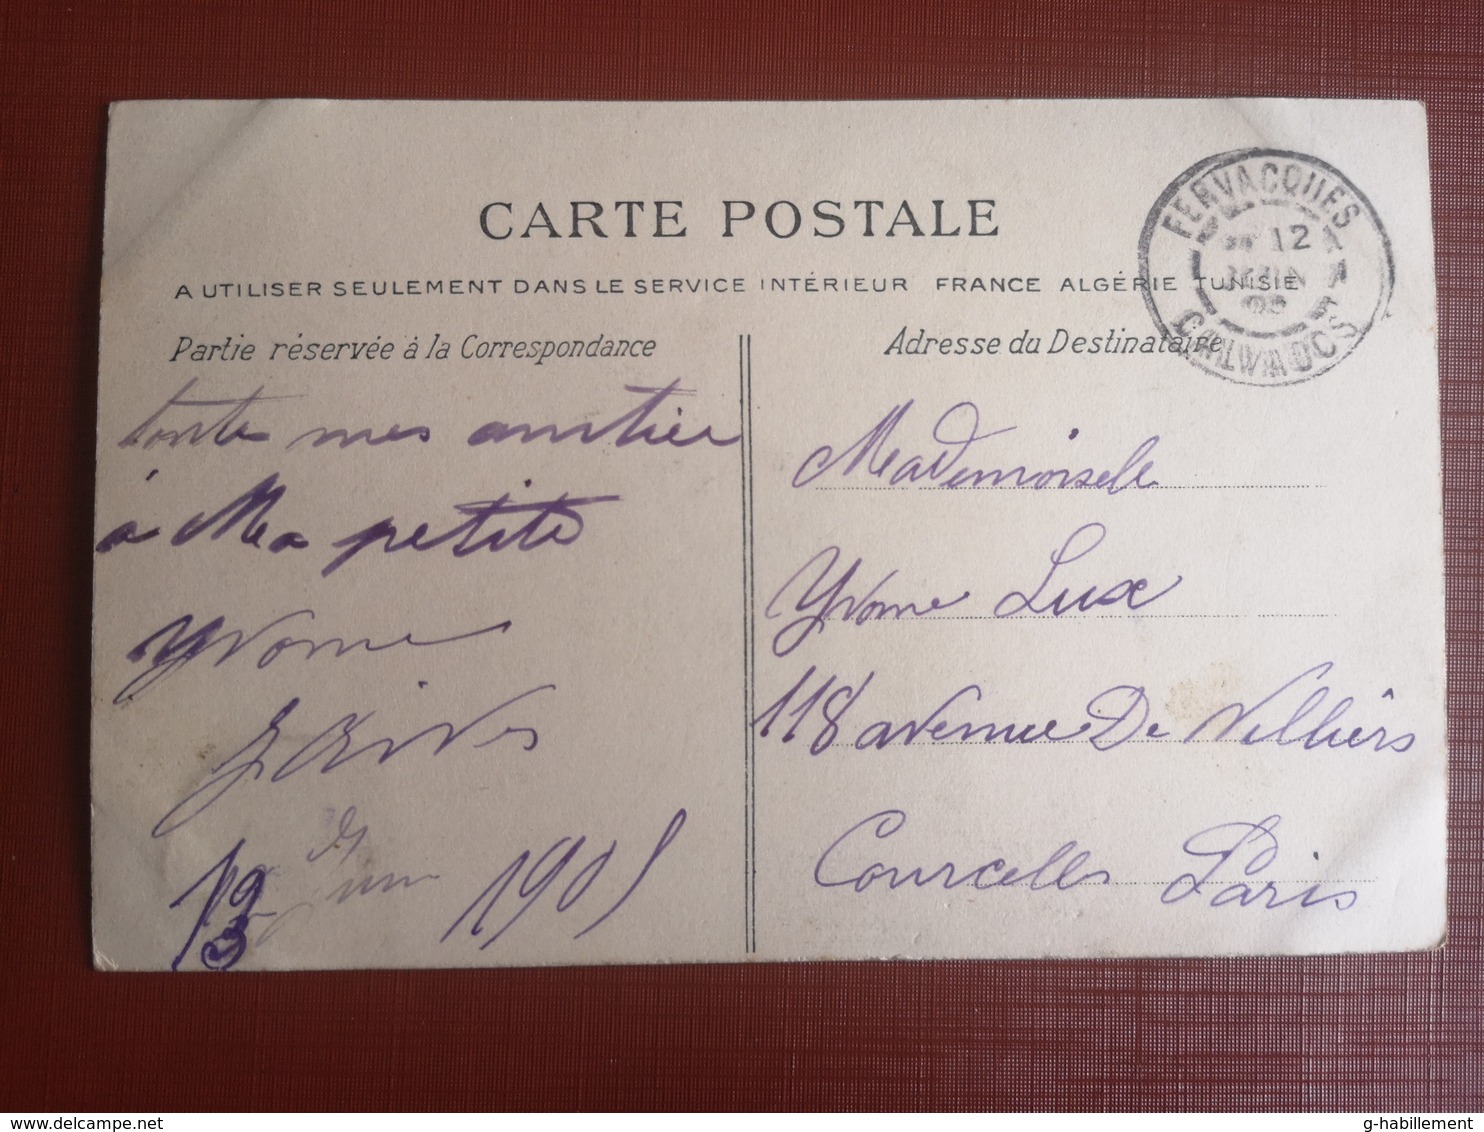 CARTE POSTALE
A UTILISER SEULEMENT DANS LE SERVICE INTÉRIEUR FRANCE ALGÉRIE TUNISIE
Partie réservée à la Correspondance
toute mes amitiée
à Ma petite
Yvonne
Juin 1905
Adresse du Destinataire
Mademoiselle
Yvonne Lux
118 avenue De Villiérs
Courcelles Paris
FERVACQUES
12
JUIN
05
CALVADOS
g-habillement
delcampe.net